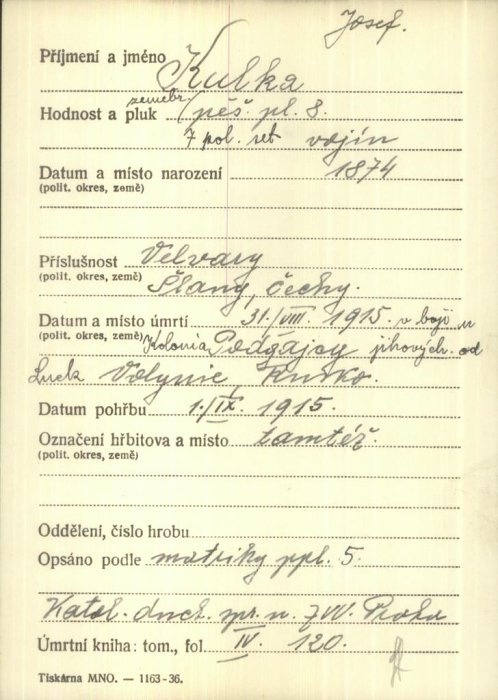 Josef.
Příjmení a jméno Kulka
zeměbr.
Hodnost a pluk pěš. pl. 8.
7 pol. set vojín
Datum a místo narození 1874
(polit. okres, země)
Příslušnost Velvary
(polit. okres, země) Slaný, Čechy.
Datum a místo úmrtí 31./VIII. 1915. v boji u
(polit. okres, země) Kolonia Podgajcy jihových. od
Luck Volynie, Rusko.
Datum pohřbu 1./IX. 1915.
Označení hřbitova a místo tamtéž.
(polit. okres, země)
Oddělení, číslo hrobu
Opsáno podle matriky ppl. 5.
Katol. duch. spr. u ZVV. Praha
Úmrtní kniha: tom., fol IV. 120.
Tiskárna MNO. — 1163-36.